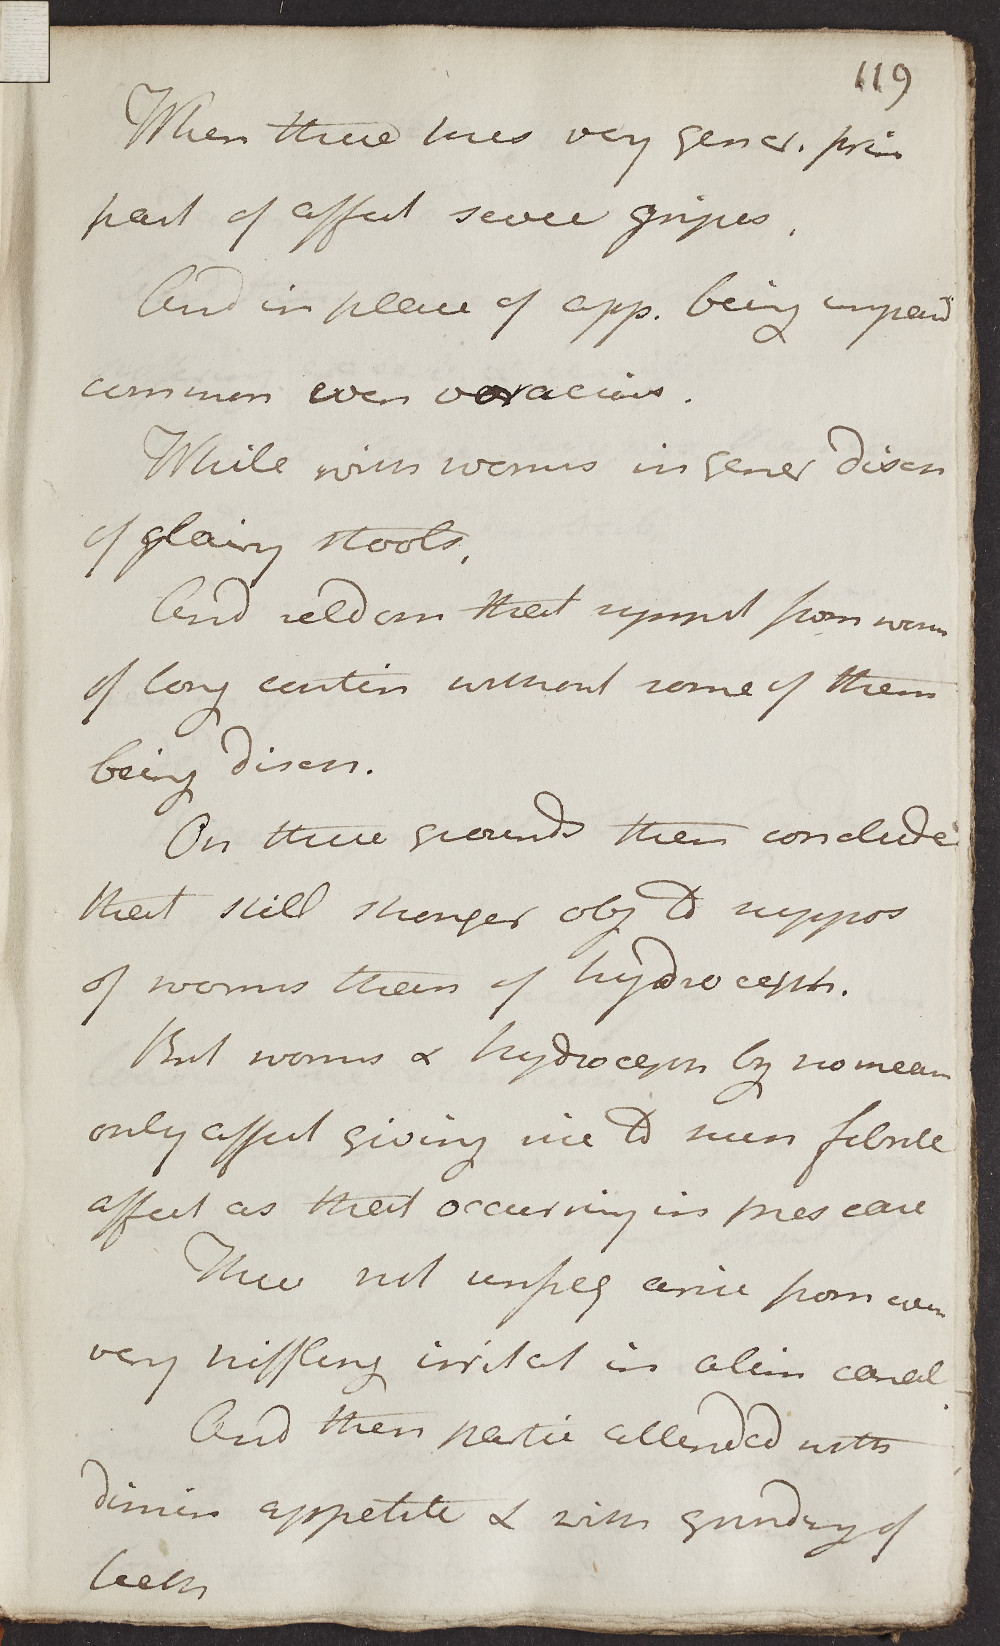 119
When these lues very gener. prin
part of affect severe gripes.
And in place of app. being impair'd
common even voracious.
While with worms in gener discn
of glairy stools.
And seldom that sympt from worm
of long contin without some of them
being discn.
On these grounds then conclude
that still stronger obj to suppos
of worms than of hydroceph.
But worms & hydroceph by no mean
only affect giving rise to such febrile
affect as that occurring in pres case
These not unfreq arise from even
very triffling irritat in alim canal
And then partic attended with
dimin appetite & with grinding of
teeth